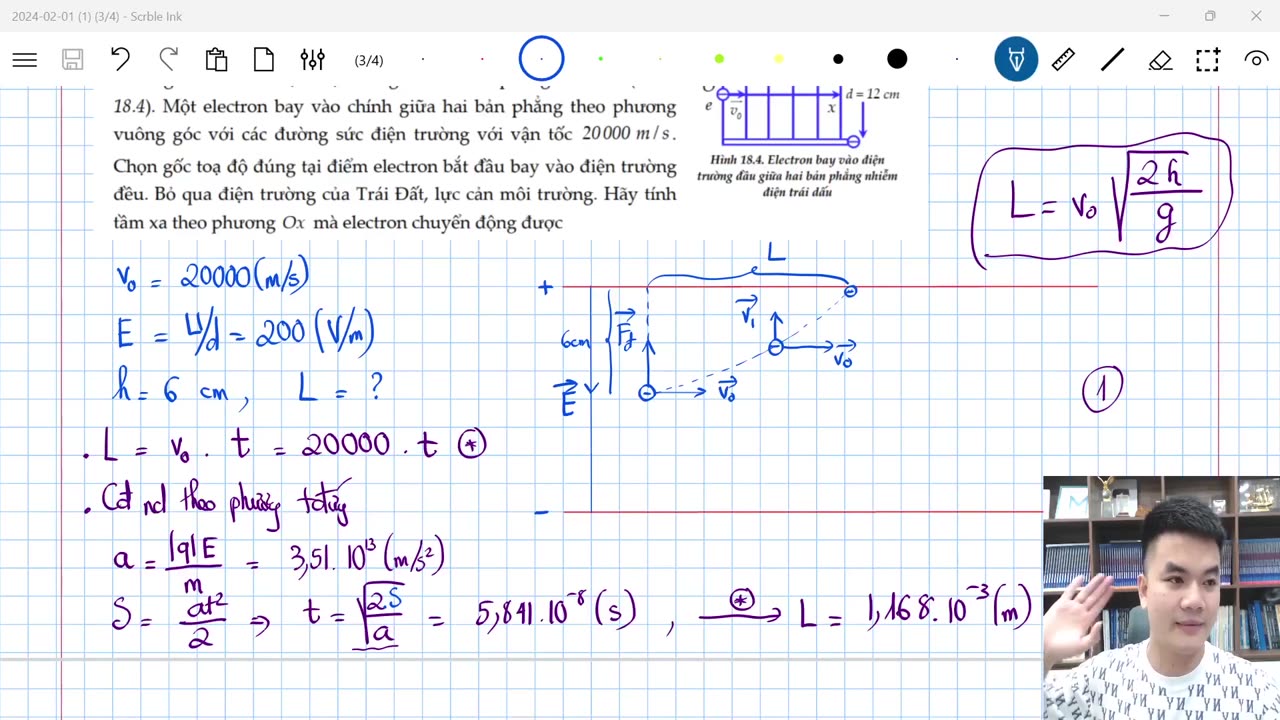 2024-02-01 (1) (3/4) - Scrble Ink
(3/4)
18.4). Một electron bay vào chính giữa hai bản phẳng theo phương
vuông góc với các đường sức điện trường với vận tốc 20000 m/s.
Chọn gốc toạ độ đúng tại điểm electron bắt đầu bay vào điện trường
đều. Bỏ qua điện trường của Trái Đất, lực cản môi trường. Hãy tính
tầm xa theo phương Ox mà electron chuyển động được
e v₀ x d = 12 cm
Hình 18.4. Electron bay vào điện
trường đều giữa hai bản phẳng nhiễm
điện trái dấu
L = v₀ √(2h/g)
v₀ = 20000 (m/s)
E = U/d = 200 (V/m)
h = 6 cm, L = ?
. L = v₀ . t = 20000 . t (*)
. Cđ nd theo phương tđứng
a = |q|E/m = 3,51. 10¹³ (m/s²)
S = at²/2 ⇒ t = √(2S/a) = 5,841.10⁻⁸ (s), (*)→ L = 1,168.10⁻³ (m)
L
+
6cm
F⃗đ
v⃗₁
v⃗₀
E⃗
v⃗₀
-
1